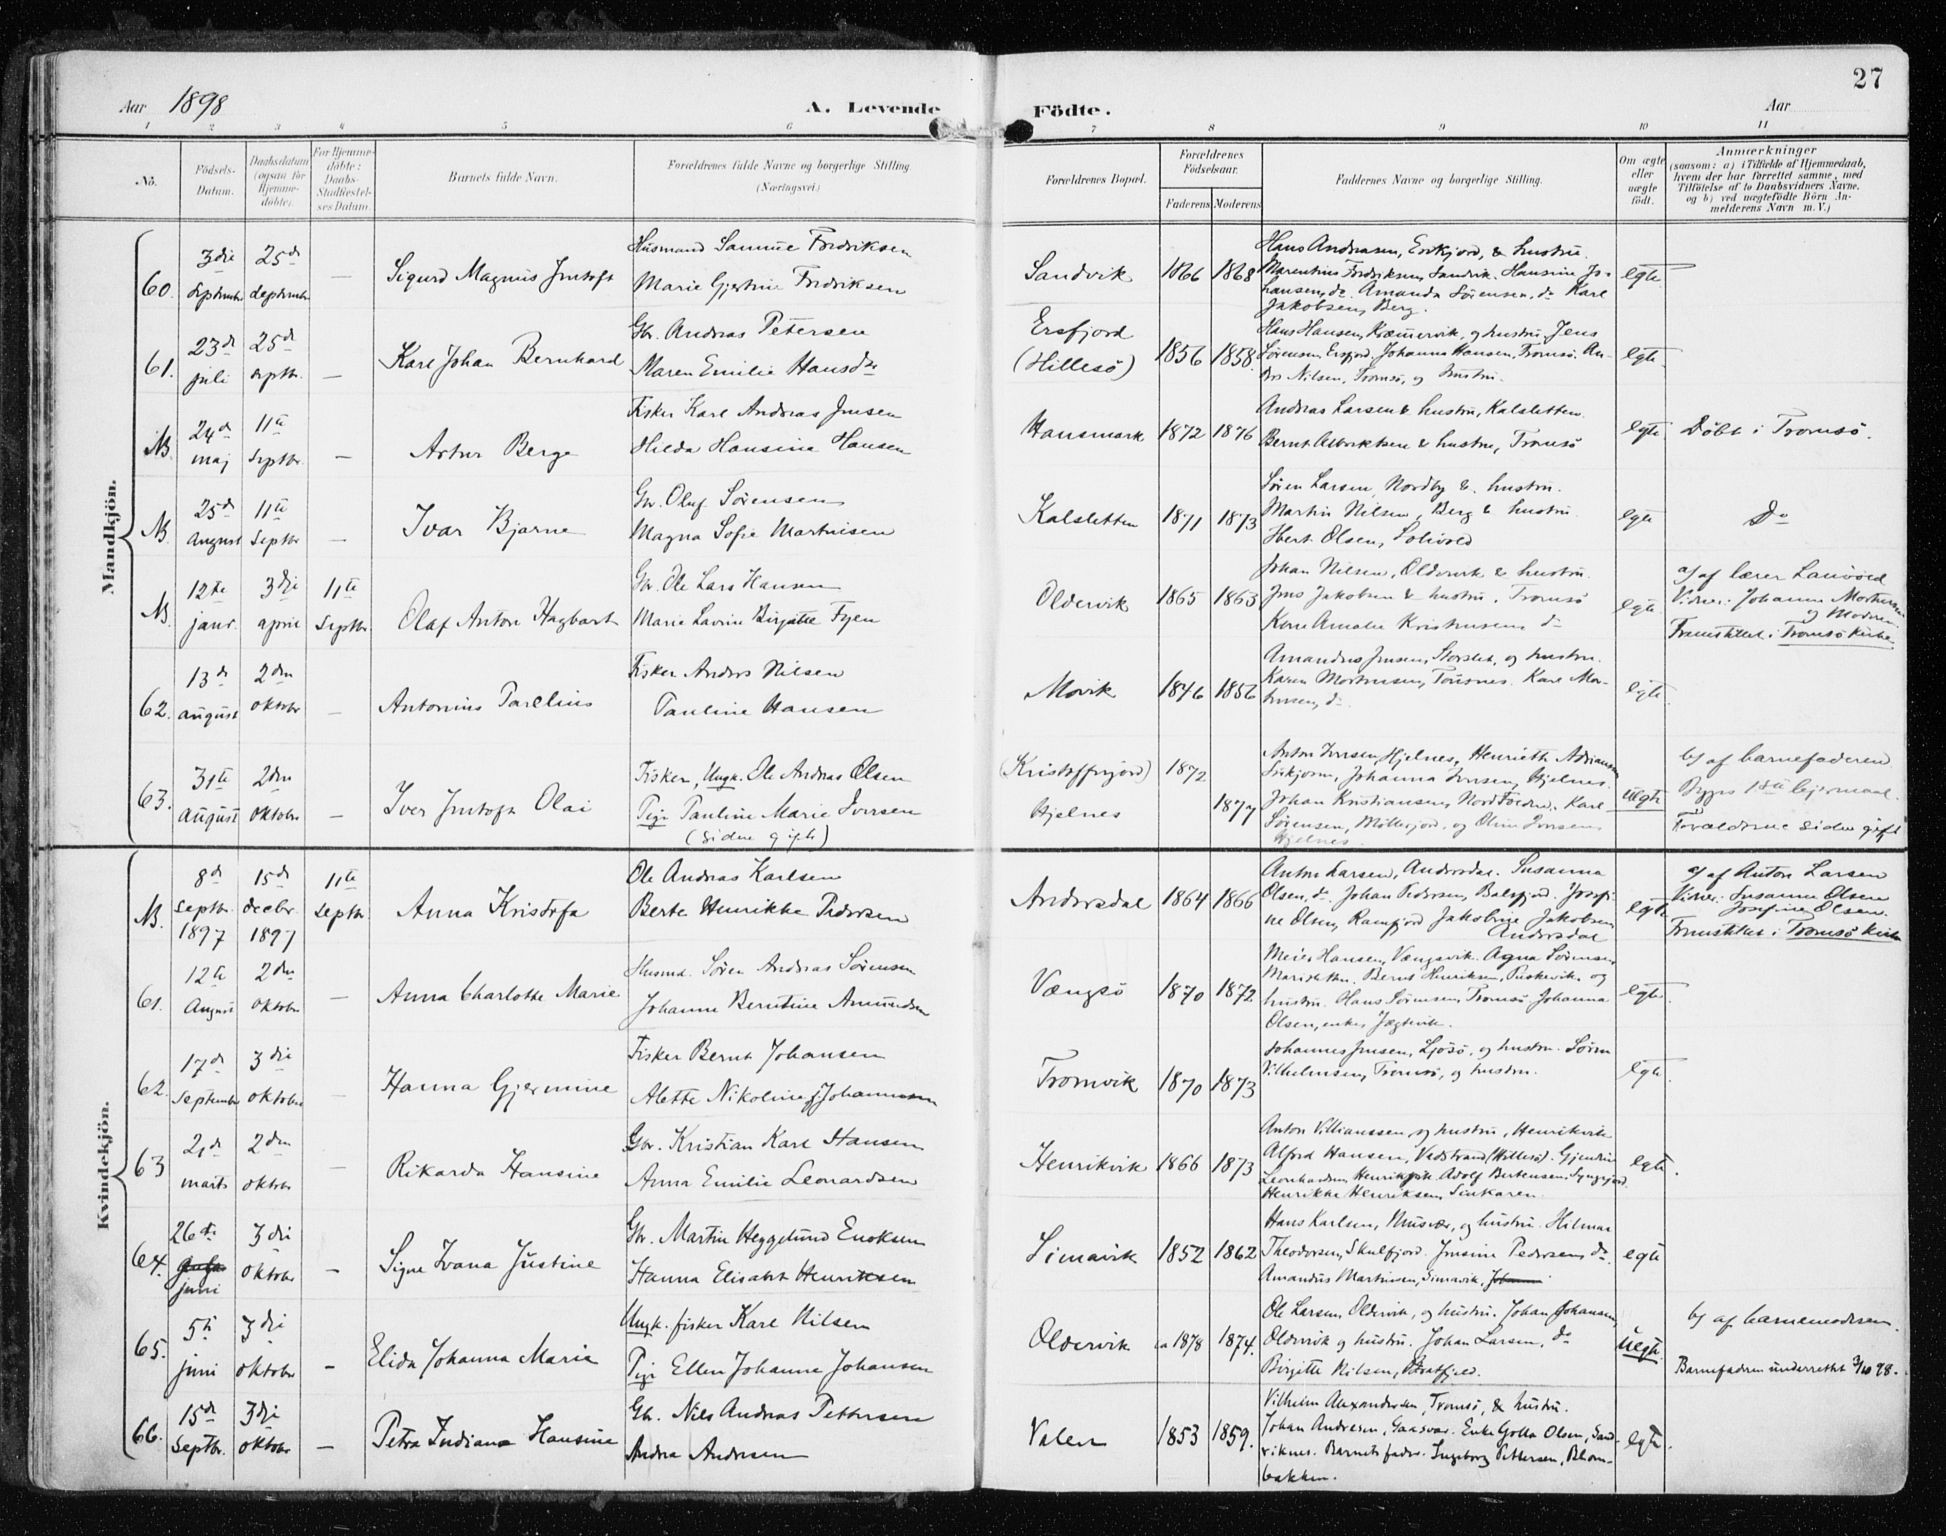 27
Aar 1898
A. Levende Födte.
Aar
1 2 3 4 5 6 7 8 9 10 11
No.
Födsels-Datum.
Daabsdatum (ogsaa for Hjemme-döbte).
For Hjemme-döbte: Daabs-Stadfæstel-ses Datum.
Barnets fulde Navn.
Forældrenes fulde Navne og borgerlige Stilling. (Næringsvei.)
Forældrenes Bopæl.
Forældrenes Födselsaar.
Faderens Moderens
Faddernes Navne og borgerlige Stilling.
Om ægte eller uægte födt.
Anmærkninger
(saasom: a) i Tilfælde af Hjemmedaab,
hvem der har forrettet samme, med
Tilföielse af to Daabsvidners Navne,
og b) ved uægtefödte Börn An-
melderens Navn m. V.)
Mandkjön.
60. 3die september 25de september — Sigurd Magnus Jentoft
Husmand Samme Fredriksen
Marie Gjertine Fredriksen
Sandvik 1866 1868
Hans Andreasen, Ersfjord, & hustru.
Marentius Fredriksen, Sandvik. Hansine Jo-
hansen, do. Amanda Sørensen, do. Karl
Jakobsen, Berg.
egte
61. 23de juli 25de septbr. — Karl Johan Bernhard
Gbr. Andreas Petersen
Maren Emilie Hansdtr
Ersfjord (Hillesø) 1856 1858.
Hans Hansen, Kræmervik, og hustru, Jens
Sørensen, Ersfjord. Johanna Hansen, Tromsø. An-
drs Nilsen, Tromsø, og hustru.
egte
N. 24de maj 11te Septbr. — Artur Berge
Fisker Karl Andreas Jensen
Hilda Hansine Hansen
Hansmark 1872 1876
Andreas Larsen & hustru, Kalsletten.
Bernt Albriktsen & hustru, Tromsø
egte Döbt i Tromsø.
N. 25de August 11te Septbr — Ivar Bjarne
Gbr. Oluf Sørensen
Magna Sofie Martinsen
Kalsletten 1871 1873
Søren Larsen, Nordby & hustru.
Martin Nilsen, Berg & hustru
Hert. Olsen,
egte Do
N. 12te janr. 3die april 11te Septbr. Olaf Anton Hagbart
Gbr. Ole Lars Hansen
Marie Lavine Birgitte Fyen
Oldervik 1865 1863
Johan Nilsen, Oldervik & hustru.
Jens Jakobsen & hustru, Tromsø
Kone Amalie Kristensen do
egte
a) af lærer
Vidner: Johanne
og Moderen
Fremstillet i Tromsø kirke.
62. 13de august 2den oktober — Antonius Parelius
Fisker Anders Nilsen
Pauline Hansen
Movik 1846 1856
Amandus Jensen, Storslet, og hustru.
Karen Mortensen, Tousnes. Karl Mor-
tensen, do.
egte
63. 31te august 2den oktober — Iver Jentoft Olai
Fisker, Ungk. Ole Andreas Olsen
Pige Pauline Marie Iversen
(siden gifte)
(Kristoffernjord) Hjelnes 1872 1877
Anton Iversen, Hjelnes, Henriette Adriansen,
Johanna Iversen, Hjelnes.
Johan Kristiansen, Karl
Sørensen, Møllerfjord, og Oline Iversen
Hjelnes.
uegte
b) af barnefaderen
Begges 1ste lejermaal.
Forældrene siden gift
Kvindekjön.
N. 8de septbr. 1897 15de decbr. 1897 11te septbr. Anna Kristofa
Ole Andreas Karlsen
Berte Henrikke Pedersen
Andersdal 1864 1866
Anton Larsen, Andersdal. Susanna
Olsen, do. Johan Pedersen, Balsfjord. Josefi-
ne Olsen, Ramfjord Jakobine Jakobsen
Andersdal
egte
a) af Anton Larsen
Vidner: Susanne Olsen
Josefine Olsen.
Fremstillet i Tromsø kirke
61. 12te August 2den oktober — Anna Charlotte Marie
Husmd. Sören Andreas Sörensen
Johanne Berntine Amundsen
Vængsø 1870 1872
Meier Hansen, Vængsvik. Agna Sørensen,
Bernt Henriksen, Puskevik og
hustru. Hans Sörensen, Tromsø Johanna
Olsen, enke, Jægtvik.
egte
62. 17de September 3die oktober — Hanna Gjermine
Fisker Bernt Johansen
Alette Nikoline Johannesen
Tromvik 1870 1873
Johannes Jensen, Ljøsø, og hustru. Sören
Vilhelmsen, Tromsø, og hustru.
egte
63 21de marts 2den oktobr — Rikarda Hansine
Gbr. Kristian Karl Hansen
Anna Emilie Leonardsen
Henrikvik 1866 1873
Anton Villianssen og hustru, Henrikvik
Alfred Hansen, Vadstrand (Hillesø). Gjendine
Leonhardsen, Henrikvik Adolf Bertensen,
Henrikke Henriksen, Sinkaren.
egte.
64. 26de juni 3die oktober — Signe Ivana Justine
Gbr. Martin Heggelund Enoksen
Hanna Elisabet Henriksen
Simavik 1852 1862
Hans Karlsen, Musvær, og hustru. Hilmar
Theodorsen, Skulsfjord. Jensine Pedersen do.
Amandus Martinsen, Simavik,
egte
65. 5te juni 3die oktober — Elida Johanna Marie
Ungk. fisker Karl Nilsen
Pige Ellen Johanna Johansen
Oldervik ca 1878 1874.
Ole Larsen, Oldervik, og hustru. Johan Johansen,
Oldervik og hustru. Johan Larsen, do
Birgitte Nilsen, Bratfjeld.
uegte.
b) af barnemoderen.
Barnefaderen underrettet 3/10 98.
66. 15de Septbr. 3die oktober — Petra Indiana Hansine
Gbr. Nils Andreas Pettersen
Andrea Andresen
Valen 1853 1859.
Vilhelm Alexandersen, Tromsø, & hustru.
Johan Andresen, Gaasvær. Enke Golla Olsen, Sand-
viknes. Barnets fader. Ingeborg Pettersen,
bakken.
egte.